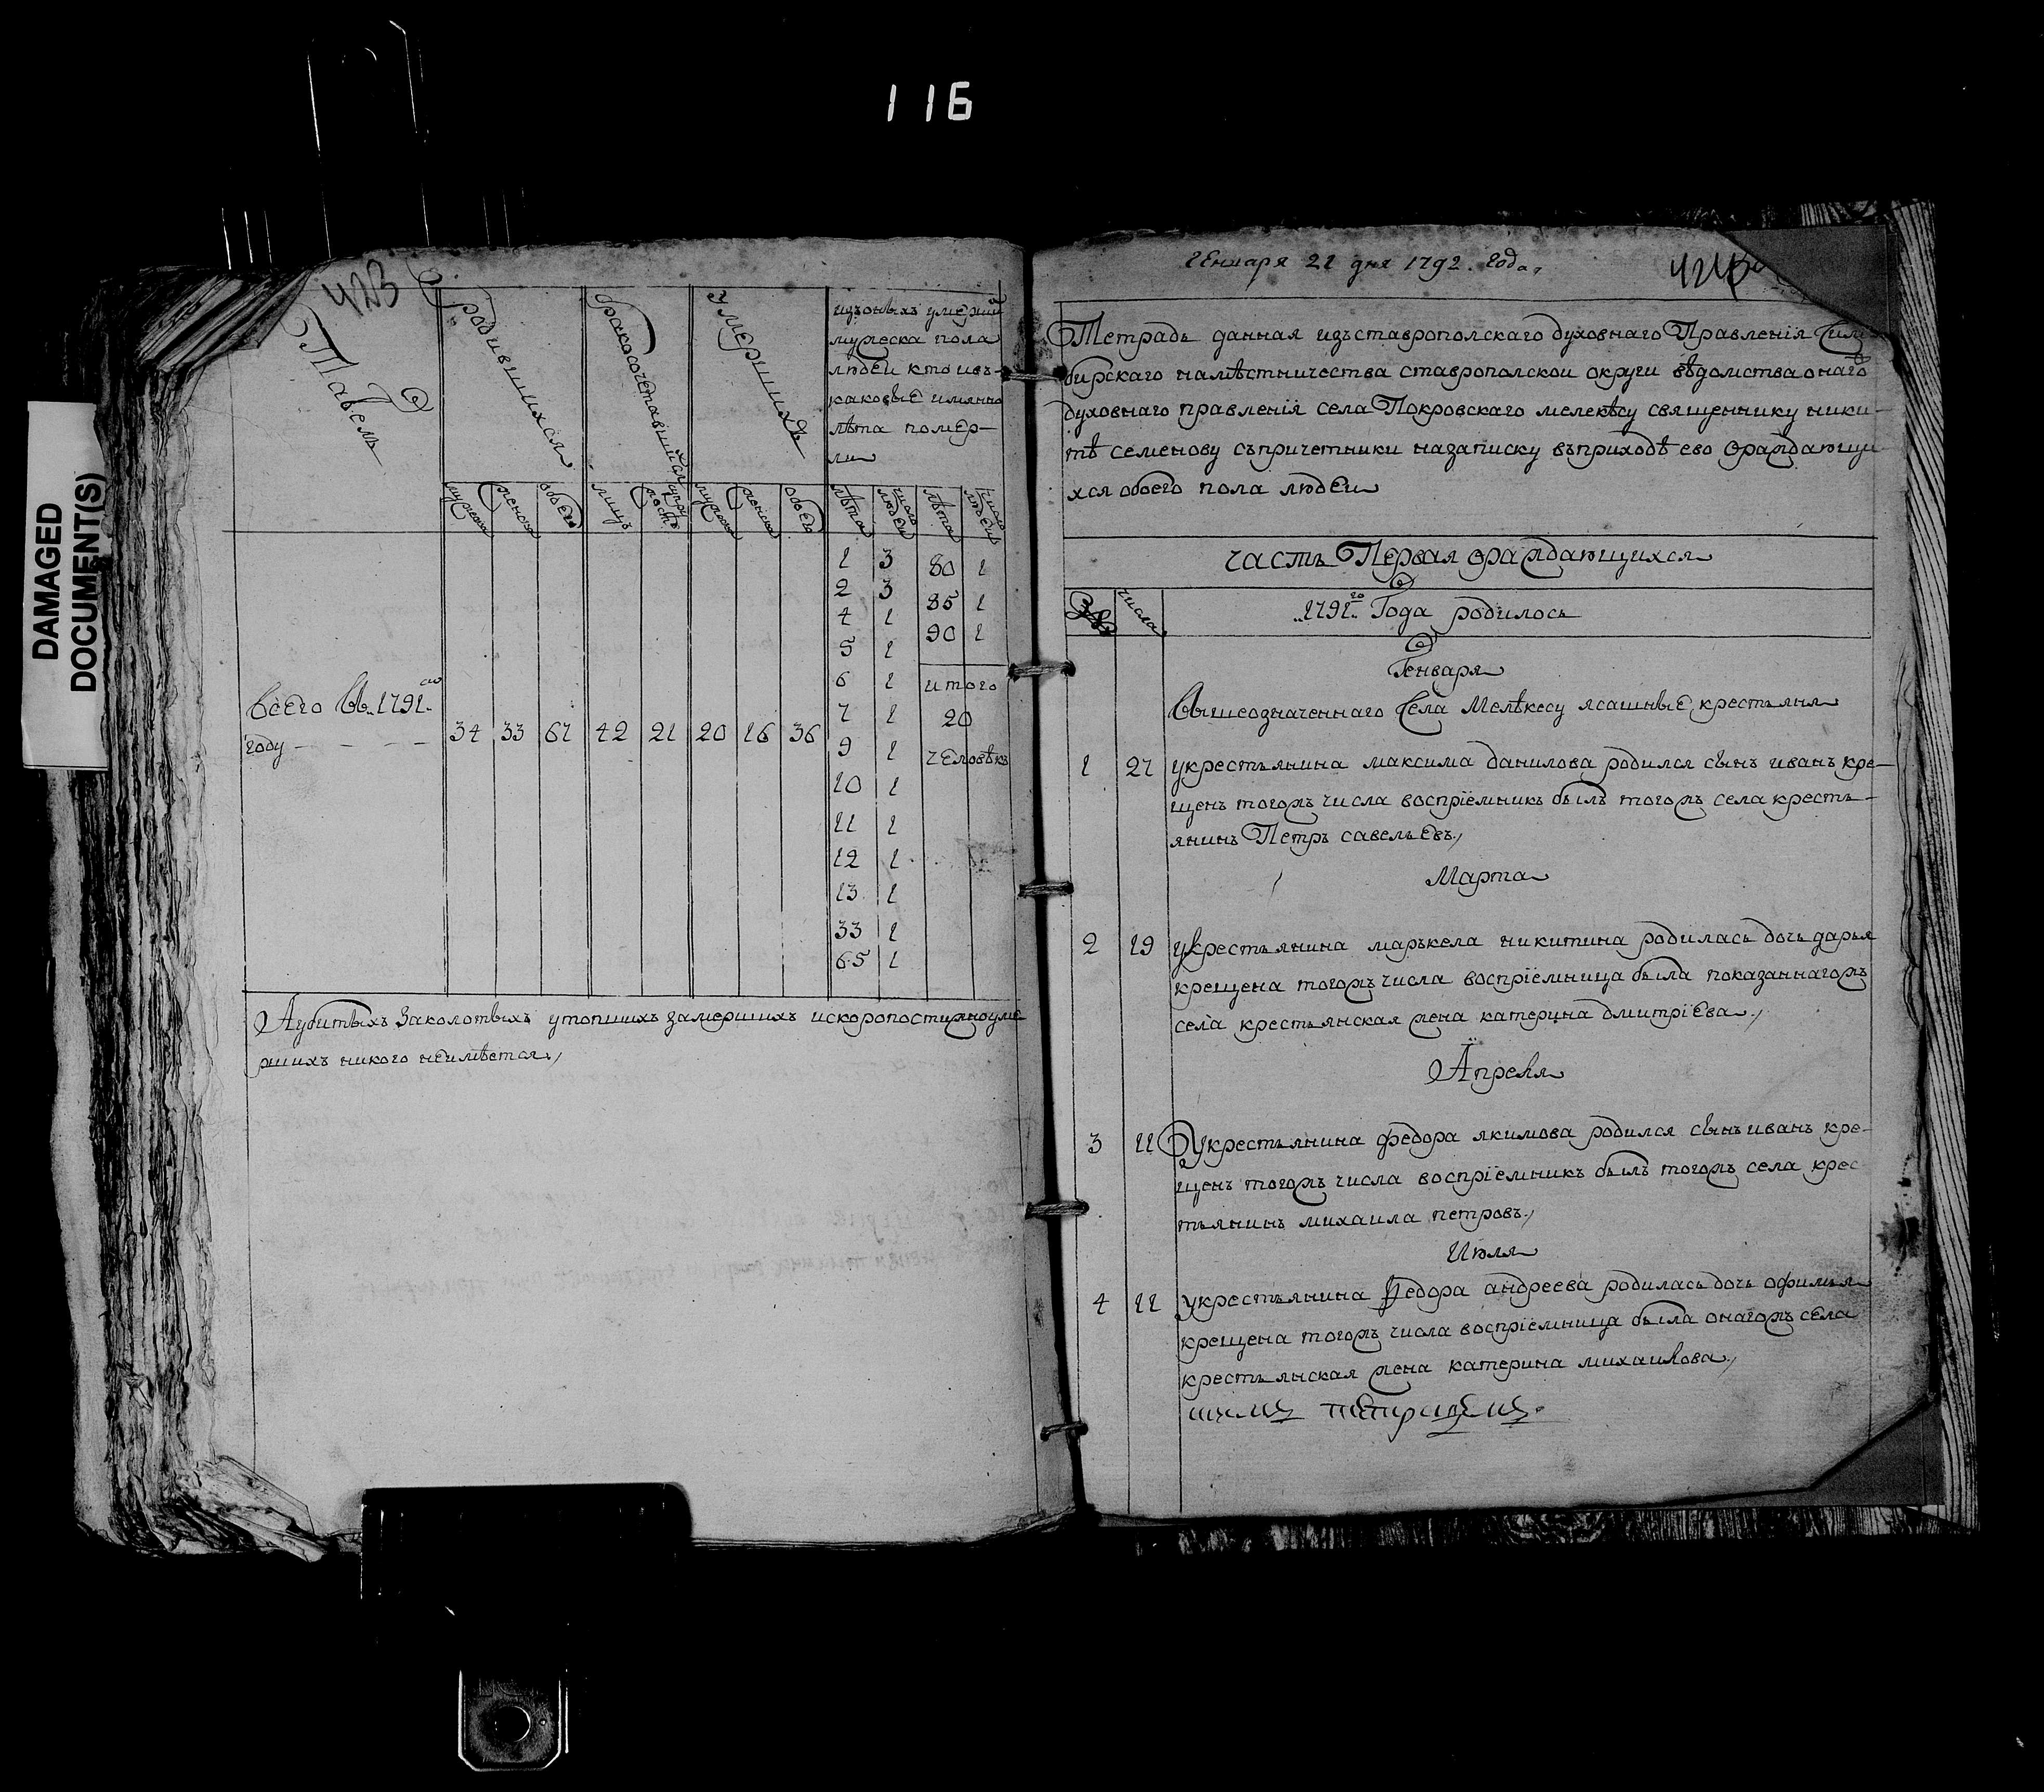 116
DAMAGED
DOCUMENT(S)
423
Табель
родившихся
бракосочетавшийся
умершихъ
изъоныхъ умерши
мужеска пола
людей кто ивъ-
каковые имянно
лѣта помер-
ли
мужеска женска обоего лицъ мужеска женска обоего лѣта число людей лѣта число людей
1 3 80 1
2 3 85 1
4 1 90 1
5 1
6 1 итого
7 1 20
9 1 человѣкъ
10 1
11 1
12 1
13 1
33 1
65 1
всего въ 1791.
году - - - - 34 33 67 42 21 20 16 36
Аубитыхъ Заколотыхъ утопшихъ замершихъ искоропостижноуме
ршихъ никого неимѣется,
Генваря 21 дня 1792. года,
424
Тетрадь данная изъставрополскаго духовнаго Правленія Сим
бирскаго намѣстничества ставрополской округи вѣдомства онаго
духовнаго правленія села Покровскаго мелекѣсу священнику ники-
тѣ семенову съпричетники назаписку въприходѣ ево ѡраждающи
хся обоего пола людей
часть Первая ѡраждающихся
числа
"1791"го Года родилось
Генваря
Вышеозначеннаго Села Мелѣкесу ясашные крестьяня
1 27 укрестьянина максима данилова родился сынъ иванъ кре-
щенъ тогожъ числа воспріемникъ былъ тогожъ села кресть-
янинъ Петръ савельевъ,
Марта
2 19 укрестьянина маръкела никитина родилась дочь дарья
крещена тогожъ числа воспріемница была показаннагожъ
села крестьянская жена катерина дмитріева,
Апреля
3 11 Укрестьянина федора якимова родился сынъ иванъ кре-
щенъ тогожъ числа воспріемникъ былъ тогожъ села крес
тьянинъ михаила петровъ,
Июля
4 11 укрестьянина Федора андреева родилась дочь офимья
крещена тогожъ числа воспріемница была онагожъ села
крестьянская жена катерина михаилова,